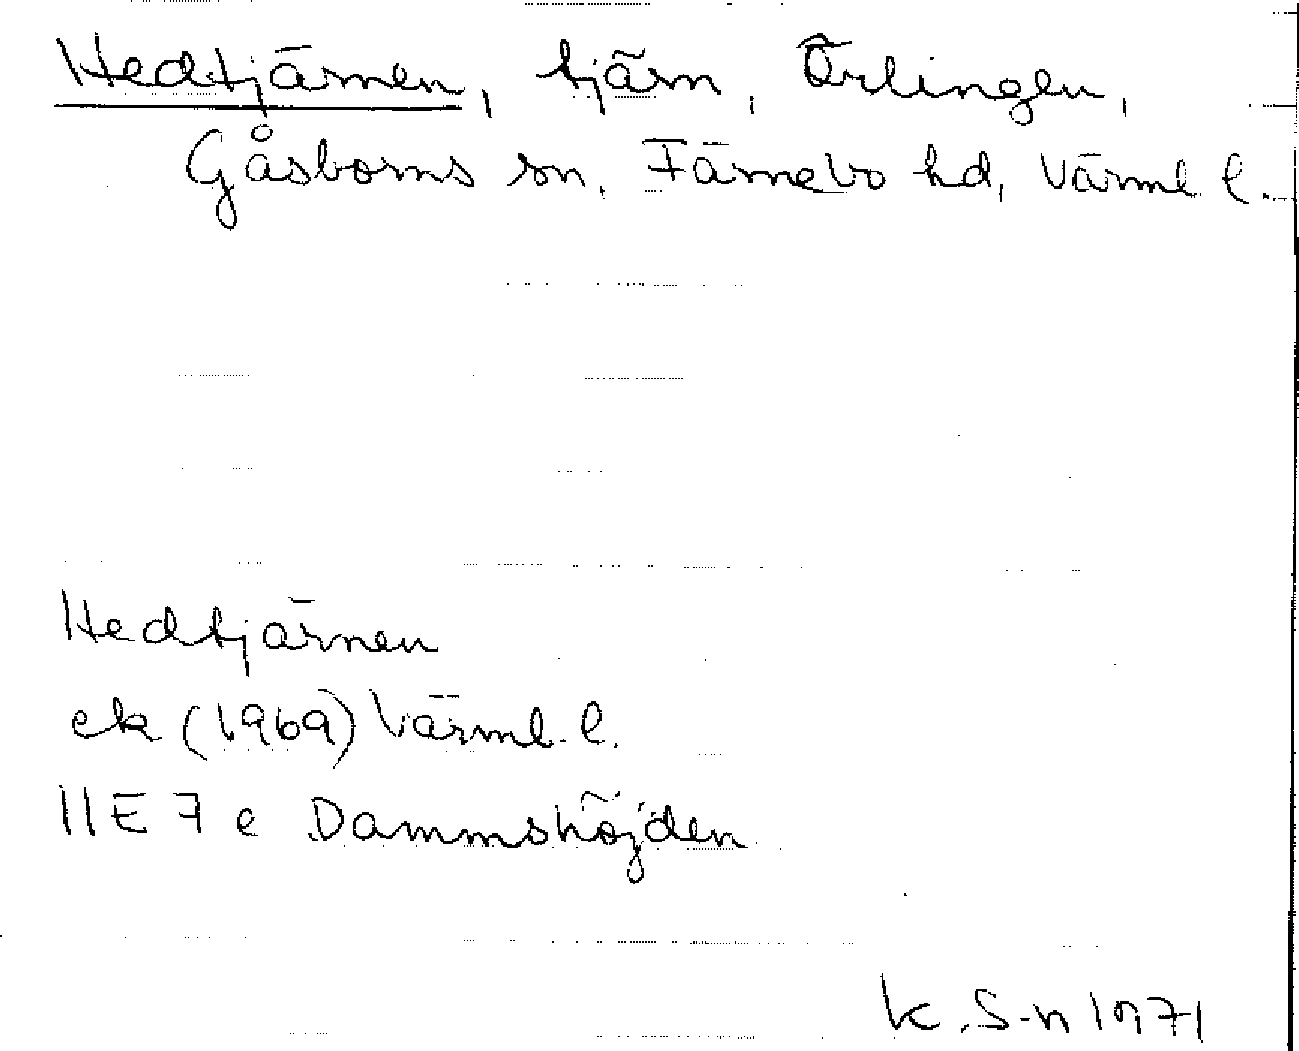 Hedtjärnen, tjärn, Örlingen,
Gåsborns sn, Färnebo hd, Värml l.
Hedtjärnen
ek (1969) Värml. l.
11E 7 e Dammshöjden
K. S-n 1971